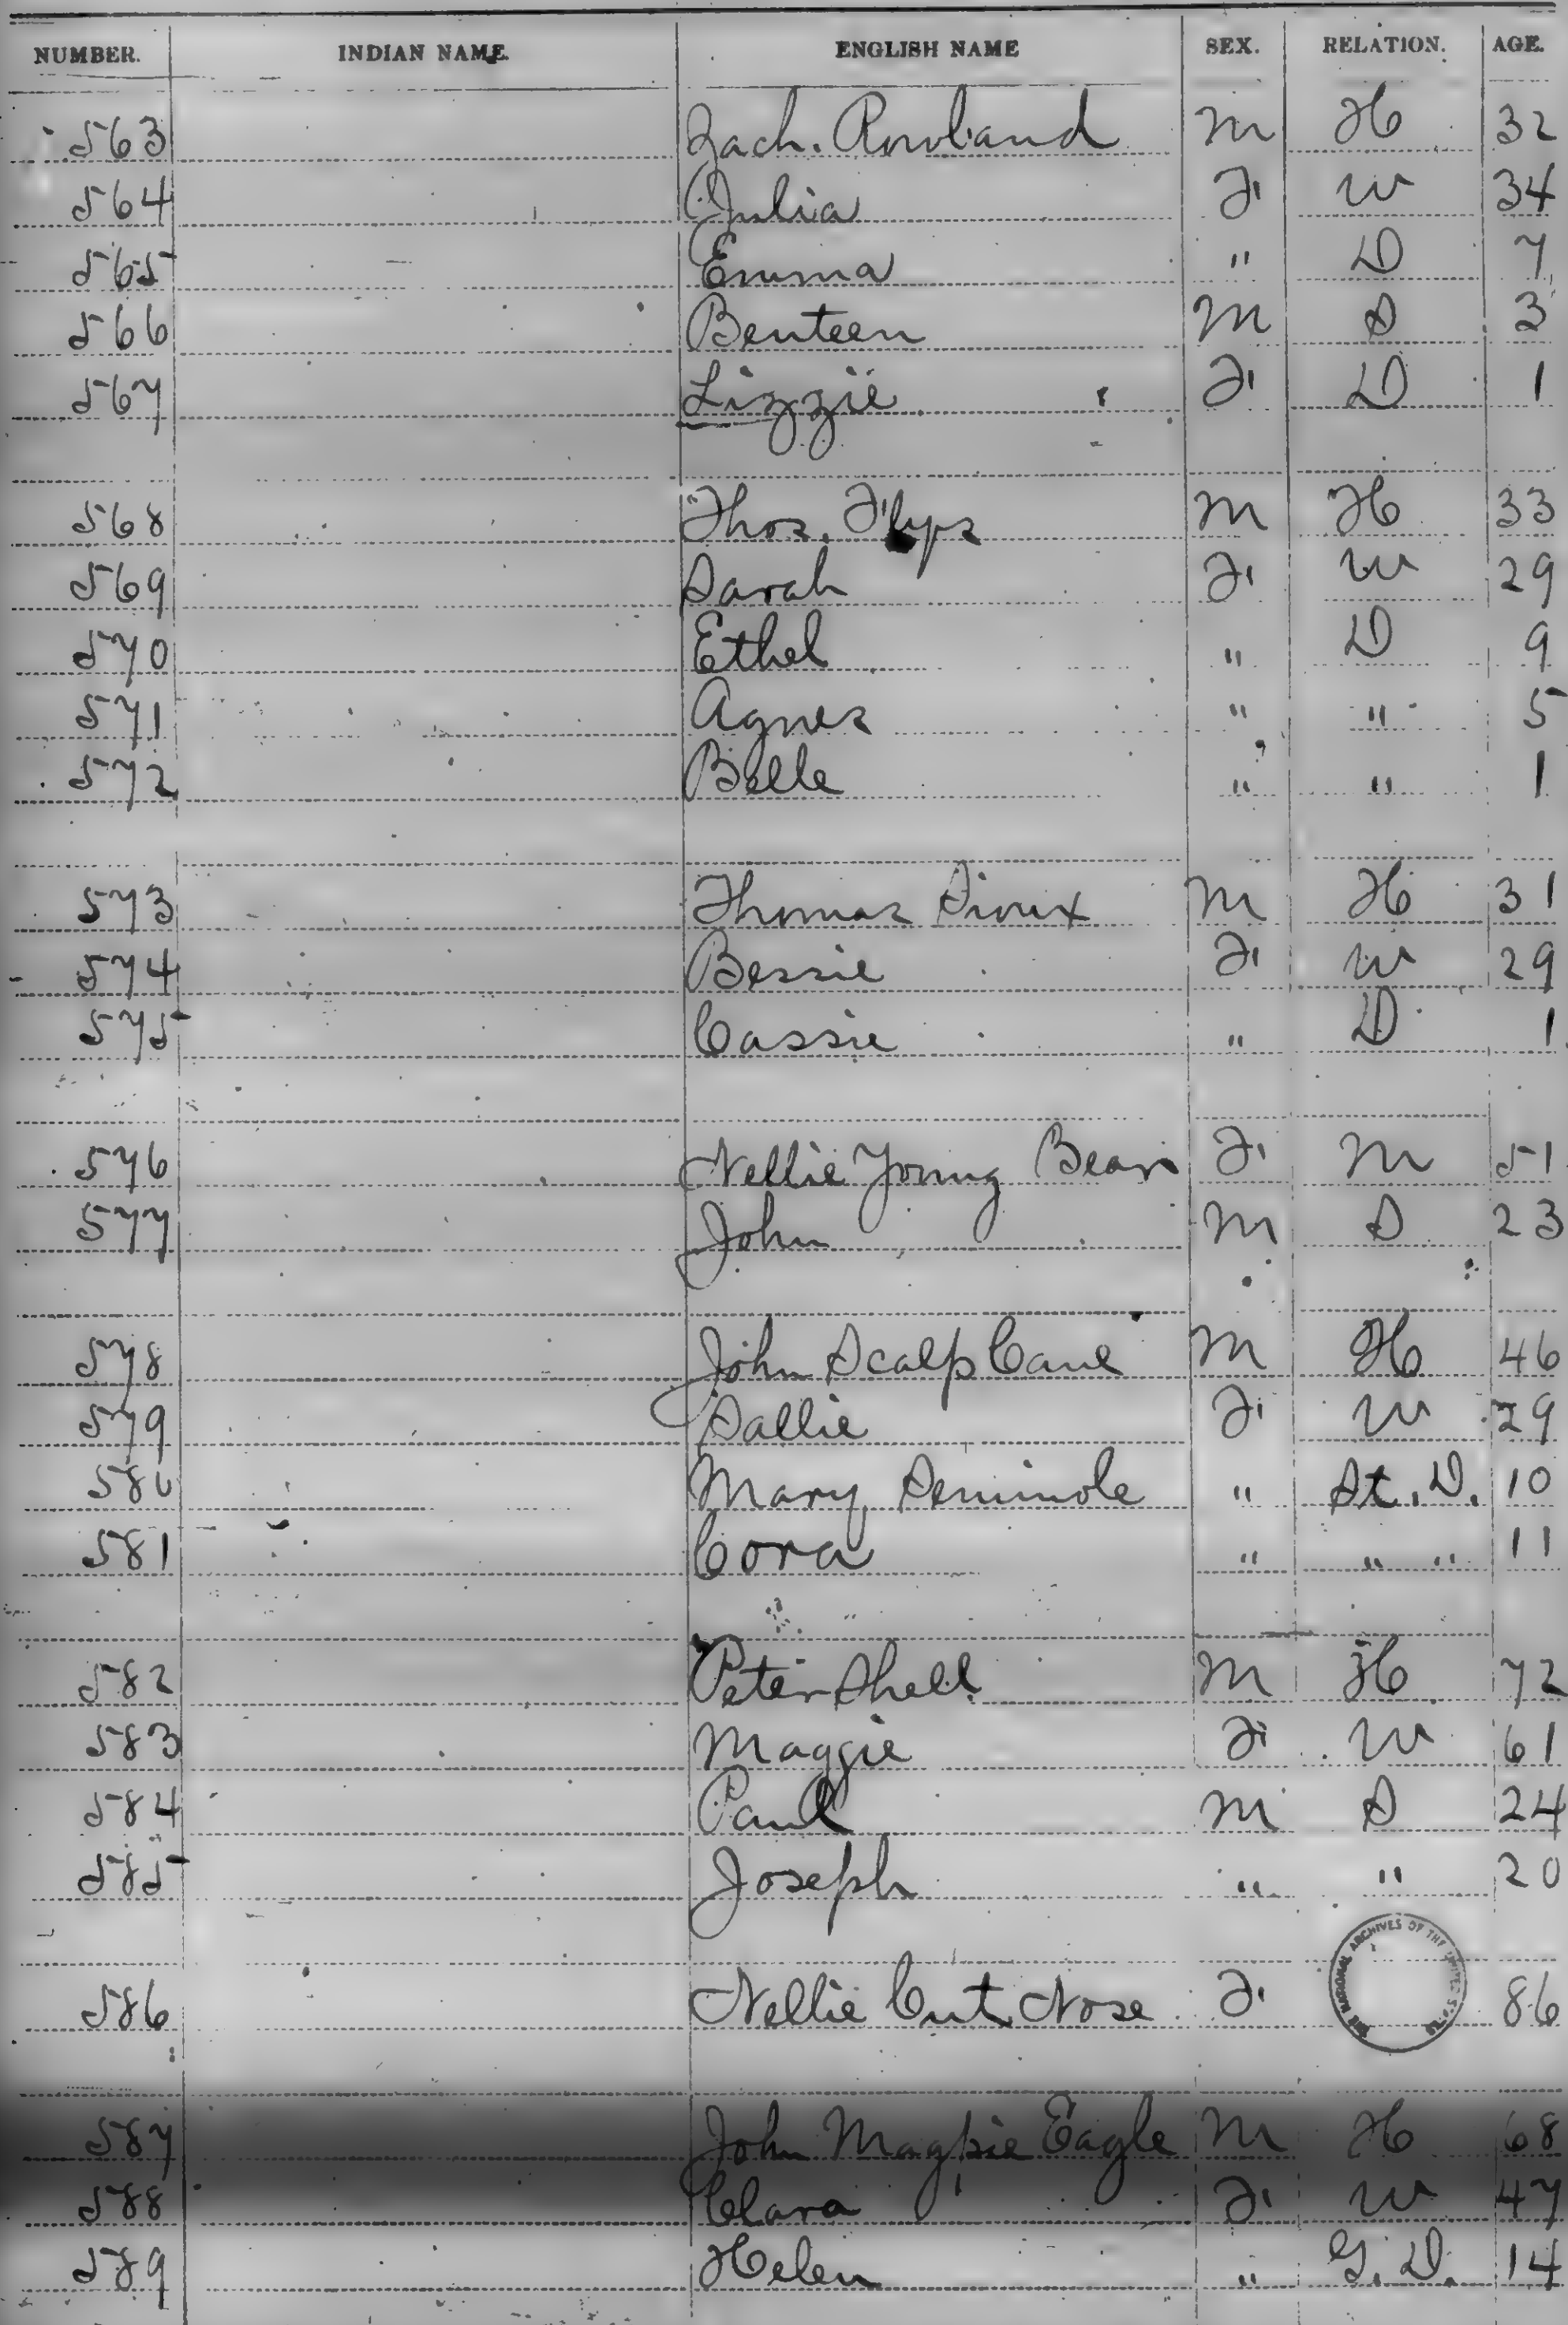 NUMBER. INDIAN NAME. ENGLISH NAME SEX. RELATION. AGE.
563 Zach. Rowland M H 32
564 Julia F W 34
565 Emma " D 7
566 Benteen M S 3
567 Lizzie F D 1
568 Thos. Flys M H 33
569 Sarah F W 29
570 Ethel " D 9
571 Agnes " " 5
572 Belle " " 1
573 Thomas Sioux M H 31
574 Bessie F W 29
575 Cassie " D 1
576 Nellie Young Bear F M 51
577 John M S 23
578 John Scalp Cane M H 46
579 Sallie F W 29
580 Mary Seminole " St. D. 10
581 Cora " " " 11
582 Peter Shell M H 72
583 Maggie F W 61
584 Paul M S 24
585 Joseph " " 20
THE NATIONAL ARCHIVES OF THE UNITED STATES
586 Nellie Cut Nose F 86
587 John Magpie Eagle M H 68
588 Clara F W 47
589 Helen " G. D. 14